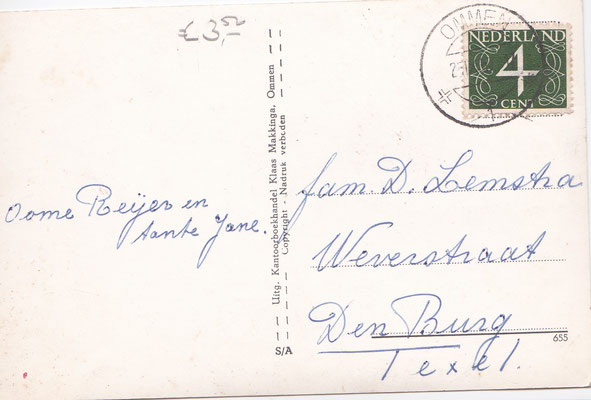 € 3,-
OMMEN
NEDERLAND
4
CENT
Oome Reijer en
tante Jane.
Uitg. Kantoorboekhandel Klaas Makkinga, Ommen
Copyright - Nadruk verboden
S/A
fam. D. Lemstra
Weverstraat
Den Burg
Texel.
655